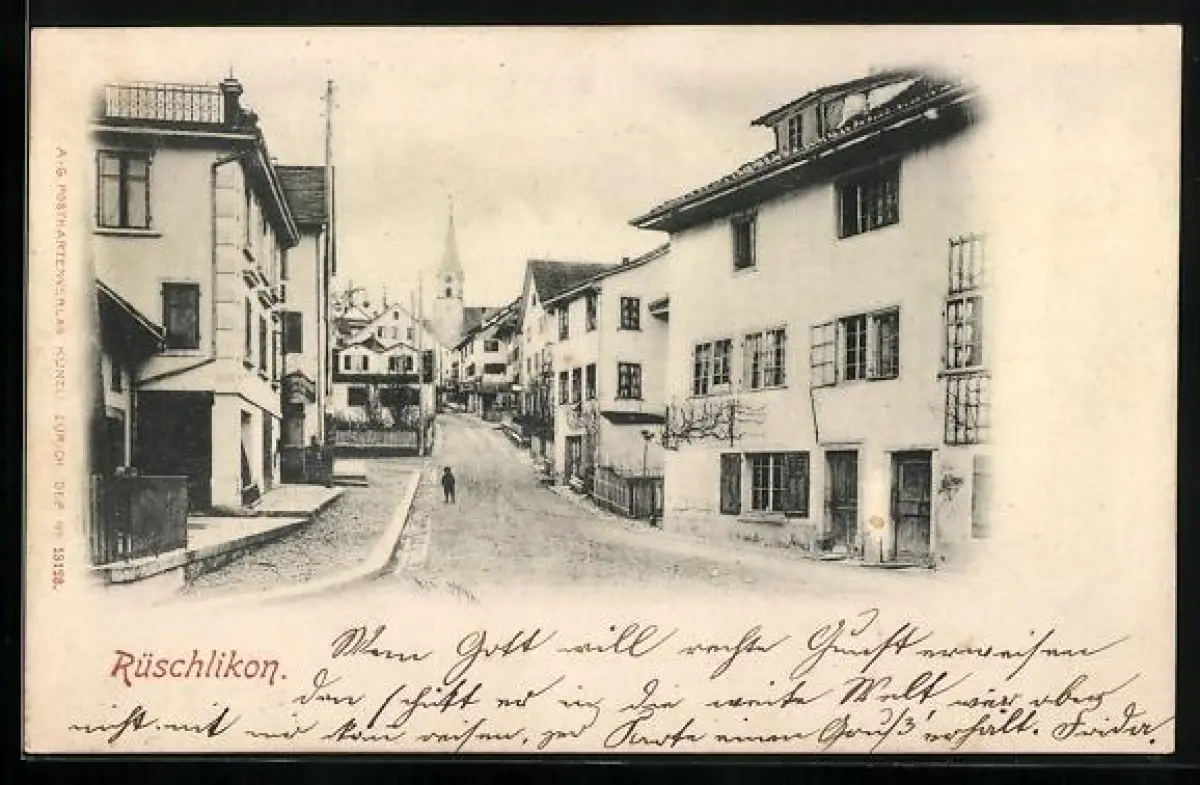 A.-G. POSTKARTENVERLAG KÜNZLI, ZÜRICH DEP. 13128.
Rüschlikon.
Wem Gott will rechte Gunst erweisen
den schikt er in die weite Welt, wer aber
nicht mit mir kan reisen, per Karte einen Gruß erhält. Frida.